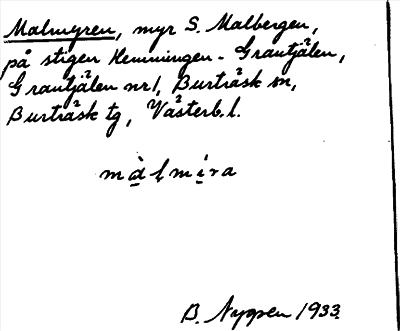 Malmyren, myr S. Malbergen,
på stigen Hemmingen - Grantjälen,
Grantjälen nr 1, Burträsk sn,
Burträsk tg, Västerb. l.
màlmira
B. Nyppen 1933.